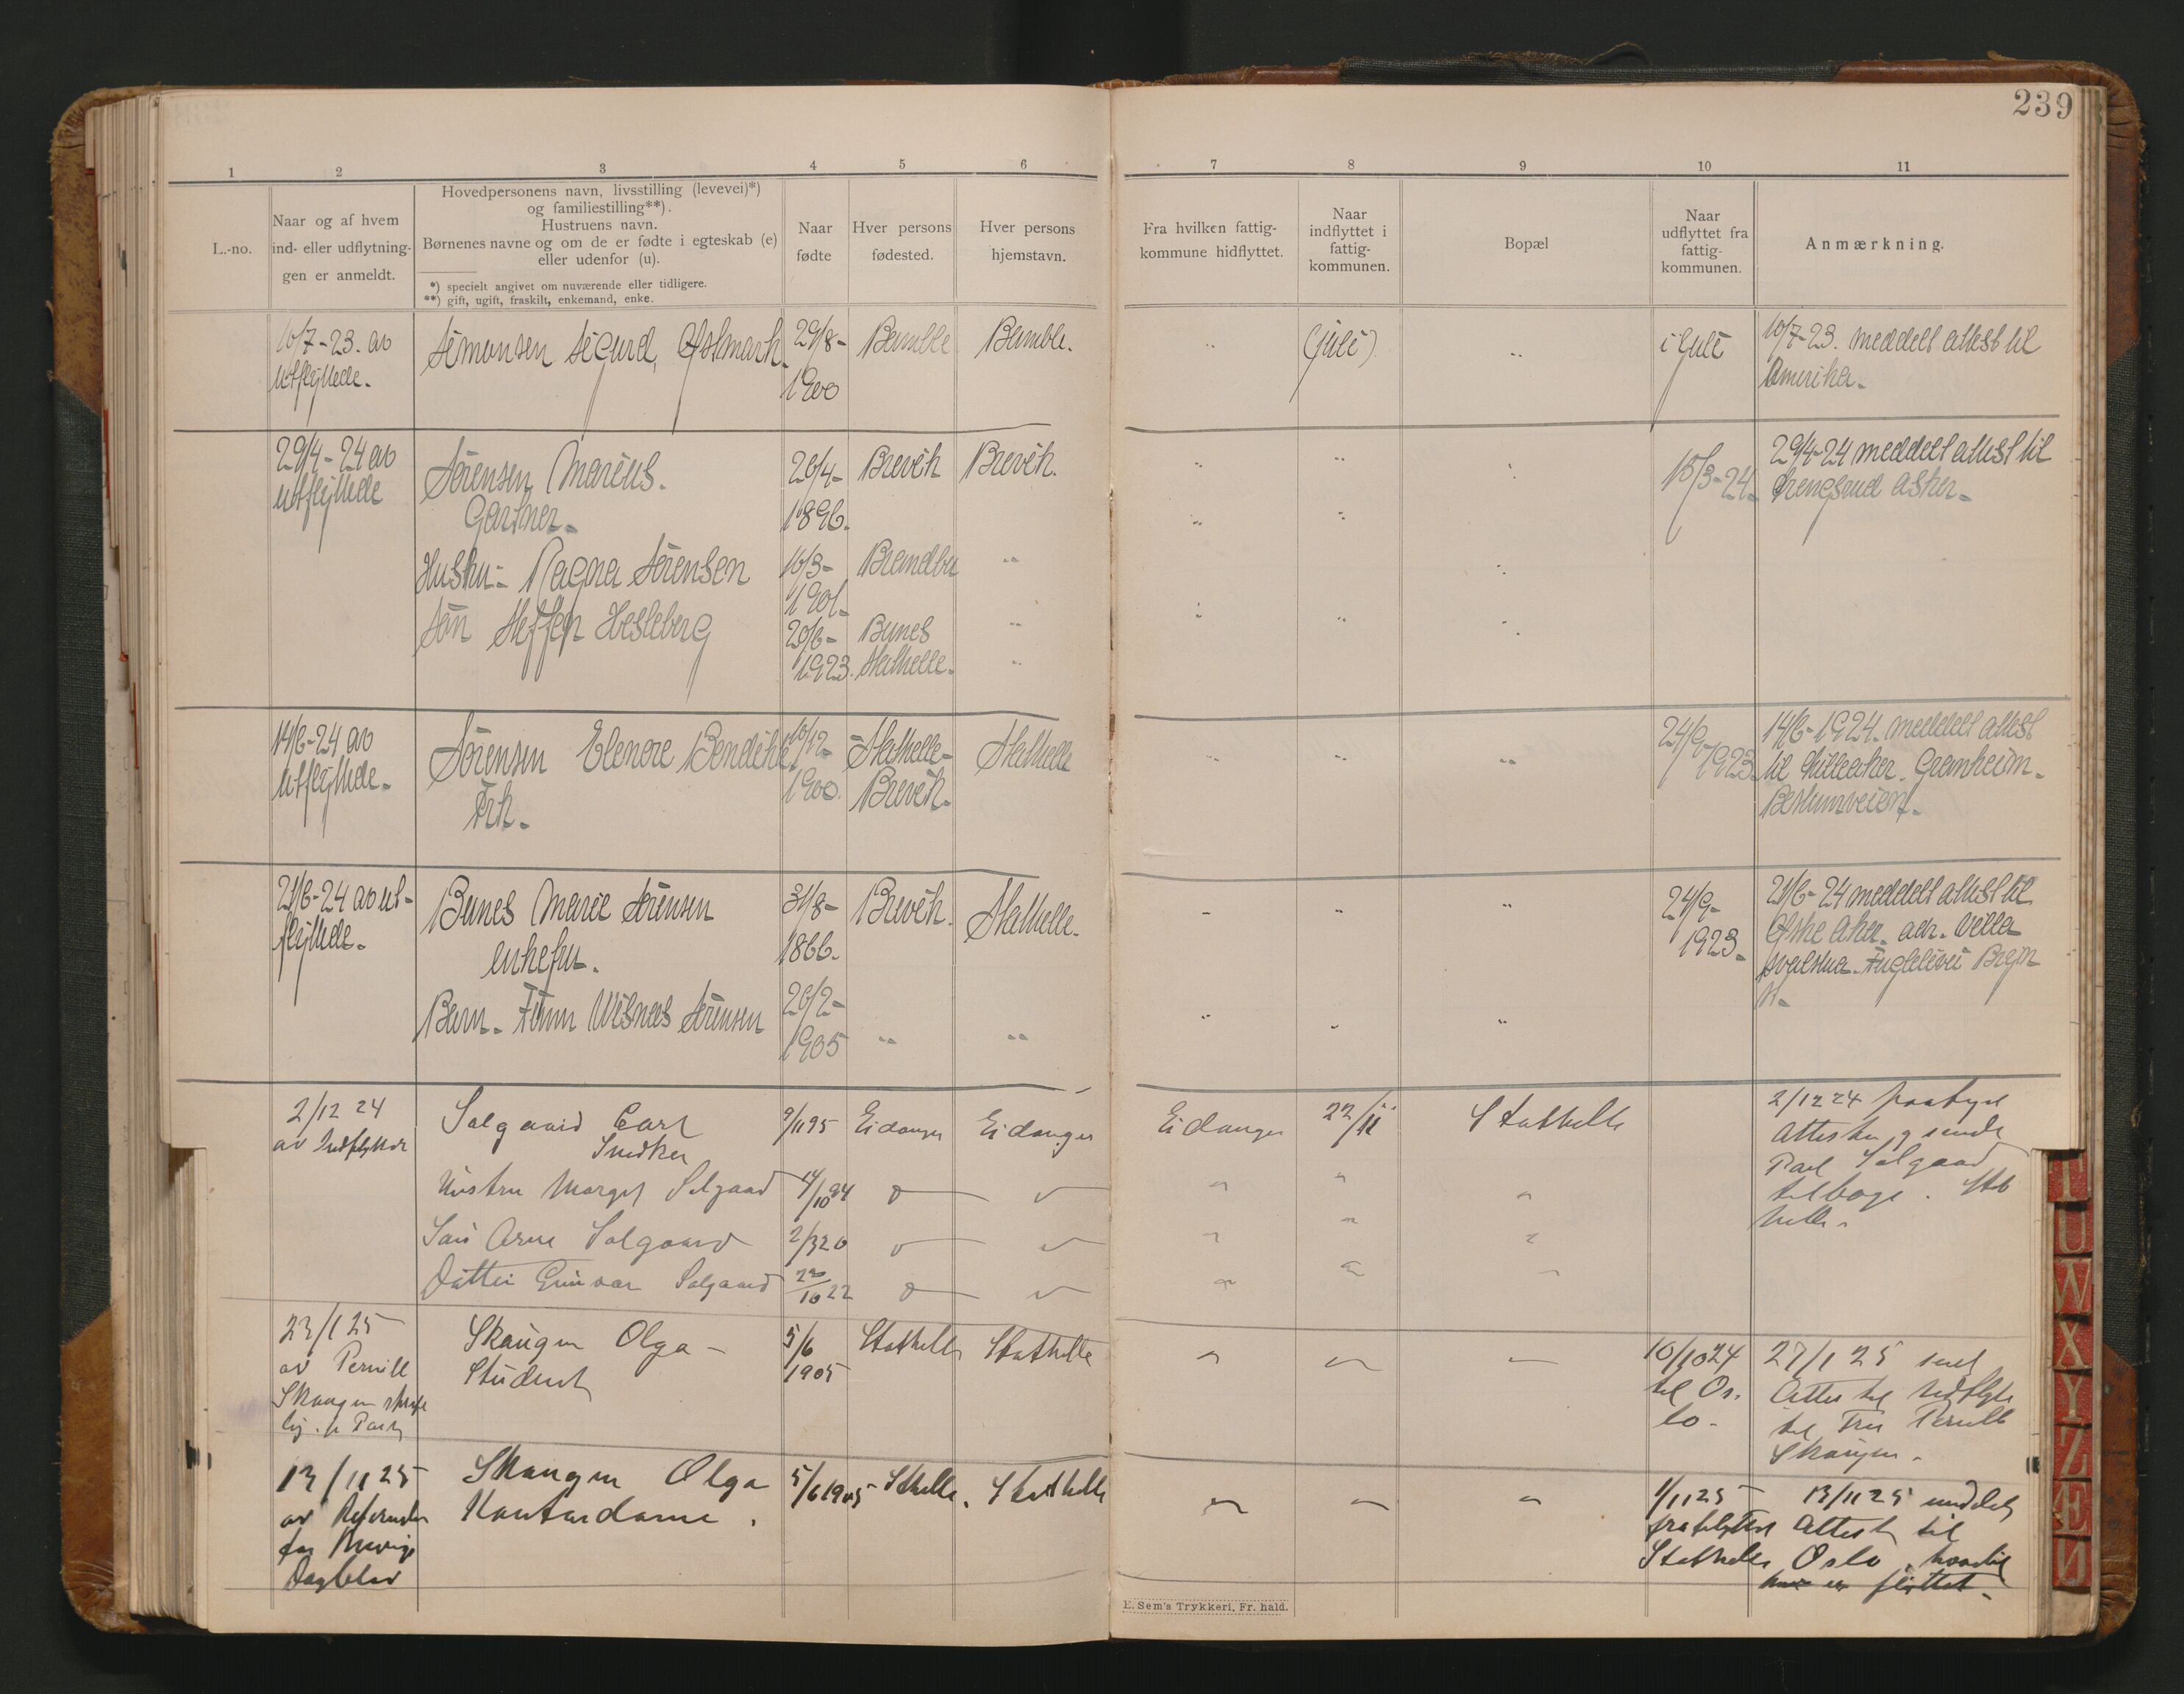 239
1 2 3 4 5 6 7 8 9 10 11
L.-no.
Naar og af hvem
ind- eller udflytning-
gen er anmeldt.
Hovedpersonens navn, livsstilling (levevei)*)
og familiestilling**).
Hustruens navn.
Børnenes navne og om de er fødte i egteskab (e)
eller udenfor (u).
*) specielt angivet om nuværende eller tidligere.
**) gift, ugift, fraskilt, enkemand, enke.
Naar
fødte
Hver persons
fødested.
Hver persons
hjemstavn.
Fra hvilken fattig-
kommune hidflyttet.
Naar
indflyttet i
fattig-
kommunen.
Bopæl
Naar
udflyttet fra
fattig-
kommunen.
Anmærkning.
10/7-23. av
utflyttede.
Simonsen Sigurd,
29/8-
1900
Bamble
Bamble.
(juli)
i Juli
10/7-23. meddelt attest til
Amerika.
29/4-24 av
utflyttede
Sørensen Marius.
Gartner.
26/4-
1896.
Brevik
Brevik.
15/3-24.
29/4-24 meddelt attest til
Asker.
Hustru- Ragna Sørensen
10/3-
1901.
Brandbu
Søn Steffen Hesleberg
20/6-
1923.
Bunes
Stathelle.
14/6-24 av
utflyttede.
Sørensen Elenore Bendikte
Frk.
10/12-
1900.
Stathelle-
Brevik.
Stathelle
24/9-
1923
14/6-1924. meddelt attest
til Lilleaker. Granheim.
Bestumveien.
21/6-24 av ut-
flyttede.
Bunes Marie Sørensen
enkefru.
31/8-
1866.
Brevik.
Stathelle.
24/9-
1923.
21/6-24 meddelt attest til
Østre Aker. adr. Villa
Barn. Finn Sørensen
26/2-
1905
2/12 24
av Indflyttede
Solgaard Carl
Snedker
9/11 95
Eidanger
Eidanger
Eidanger
22/11
Stathelle
2/12 24
Attesten
Solgaard
tilbage.
Hustru Margit Solgaard
4/10 94
Søn Arne Solgaard
2/3 20
Datter Gunvor Solgaard
10 22
23/1 25
av Pernille
Skaugen
Skaugen Olga -
Student
5/6
1905
Stathelle
Stathelle
10/10 24
til Os-
lo.
27/1 25 sendt
Attest
til Fru Pernille
Skaugen.
13/11 25
av
for
Dagblad
Skaugen Olga
Kontordame.
5/6 1905
Stathelle
1/11 25
fraflyttet
Stathelle
13/11 25 meddelt
Attest til
Oslo, hvortil
hun er flyttet.
E. Sem's Trykkeri, Fr. hald.
T
U
W
X
Y
Z
Æ